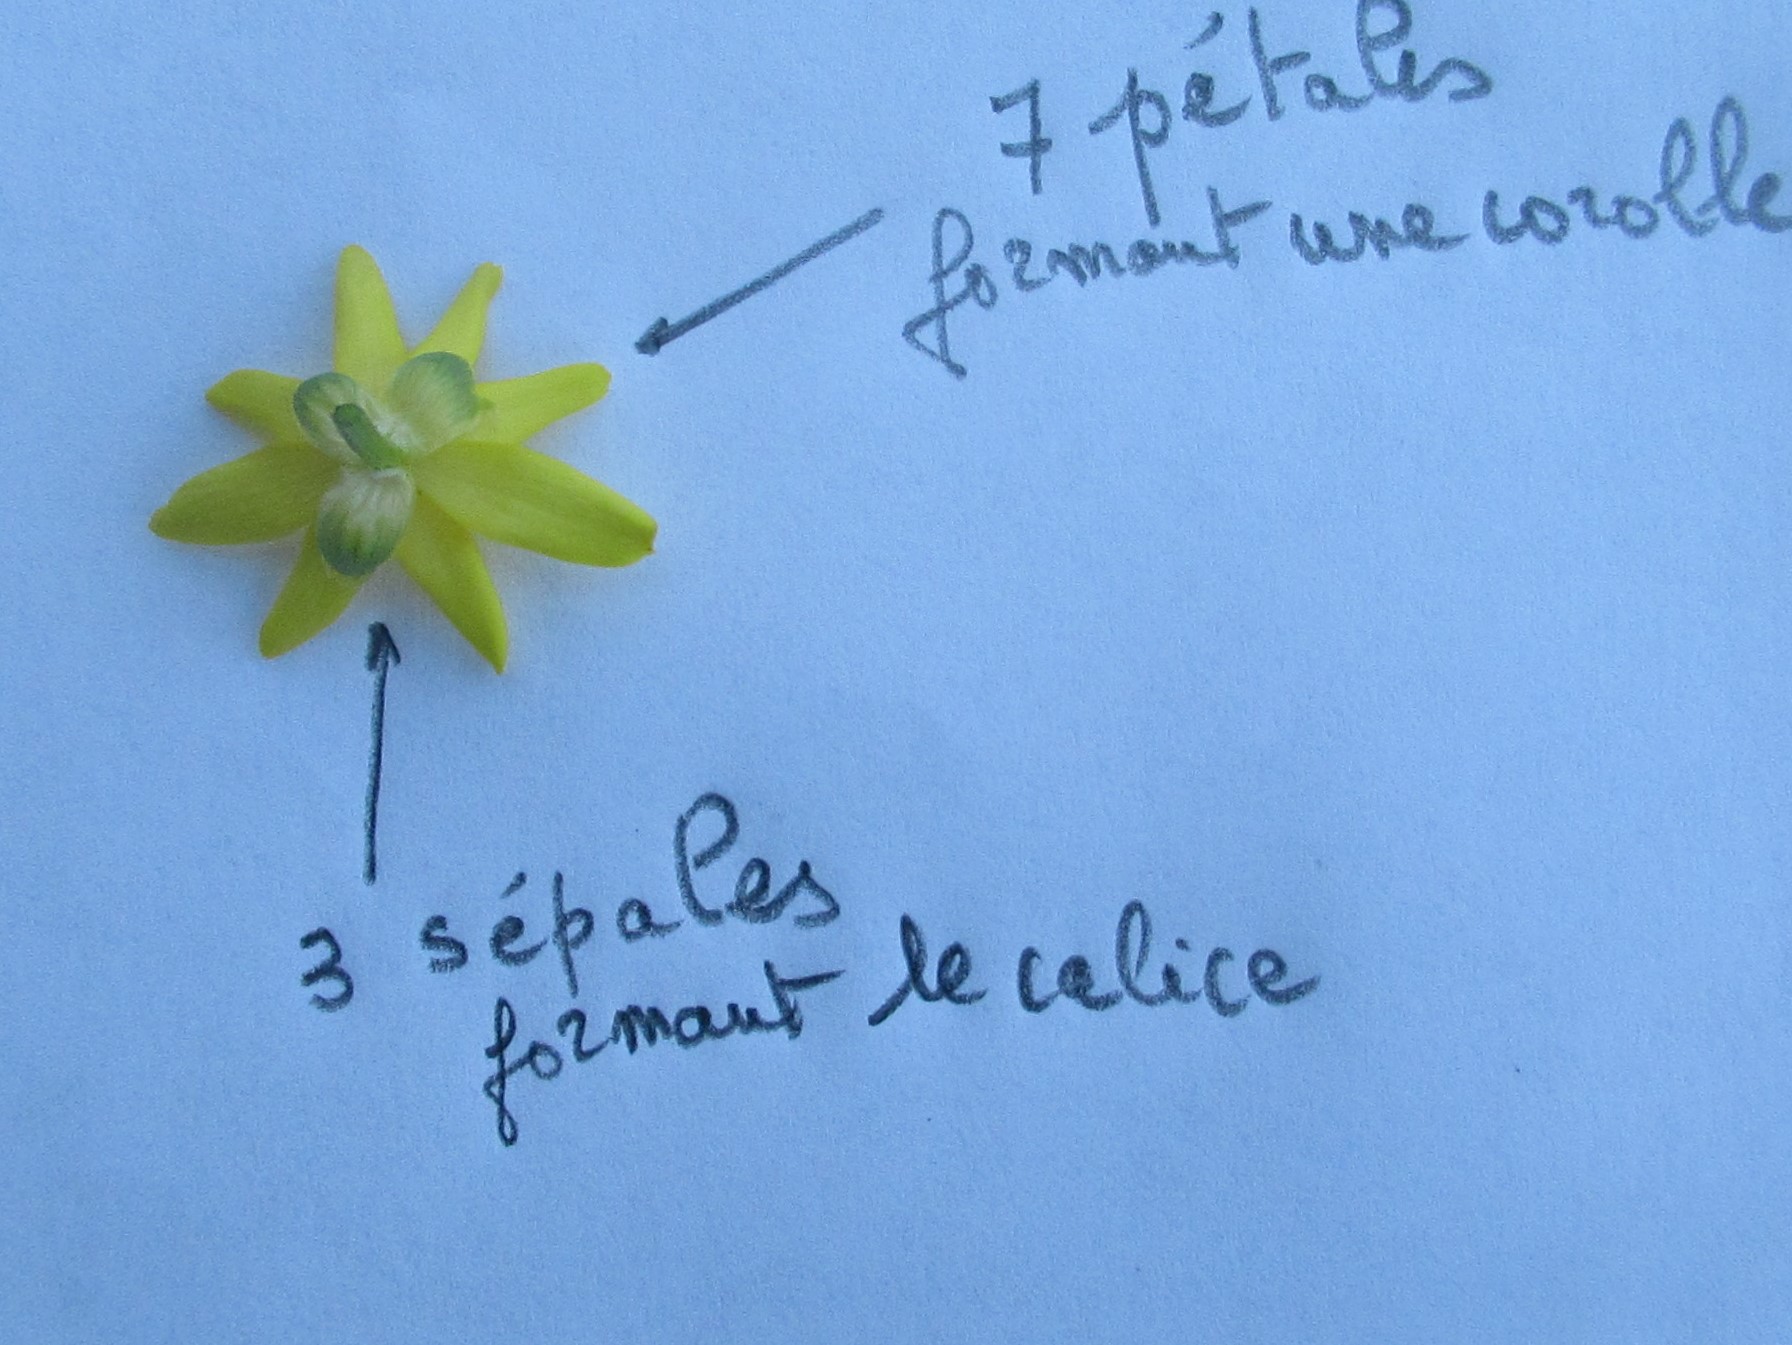 7 pétales
formant une corolle
3 sépales
formant le calice